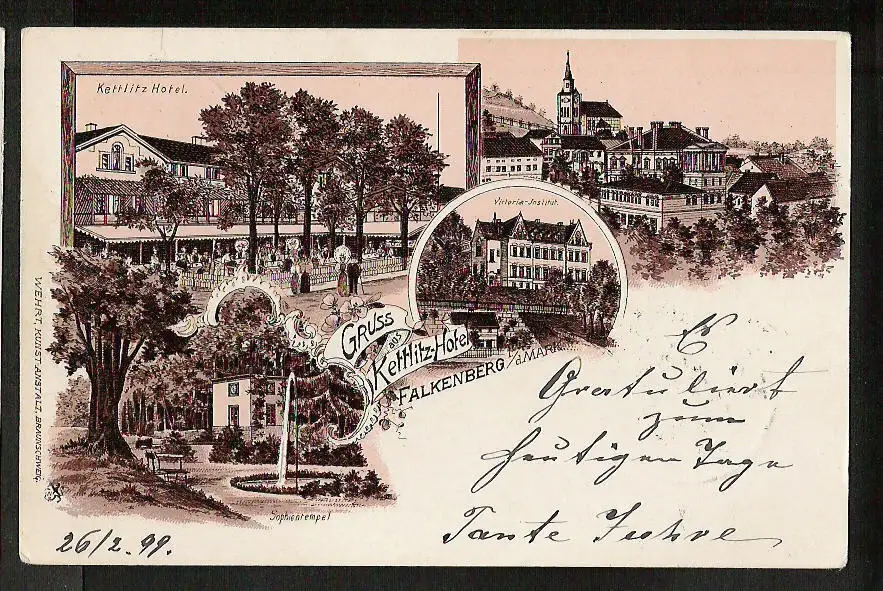 Kettlitz Hotel.
Victoria-Institut.
GRUSS
aus
Kettlitz-Hotel
FALKENBERG i/d. MARK
Sophientempel
WEHRT, KUNST-ANSTALT, BRAUNSCHWEIG.
Es
Gratuliert
zum
heutigen Tage
Tante
26/2. 99.